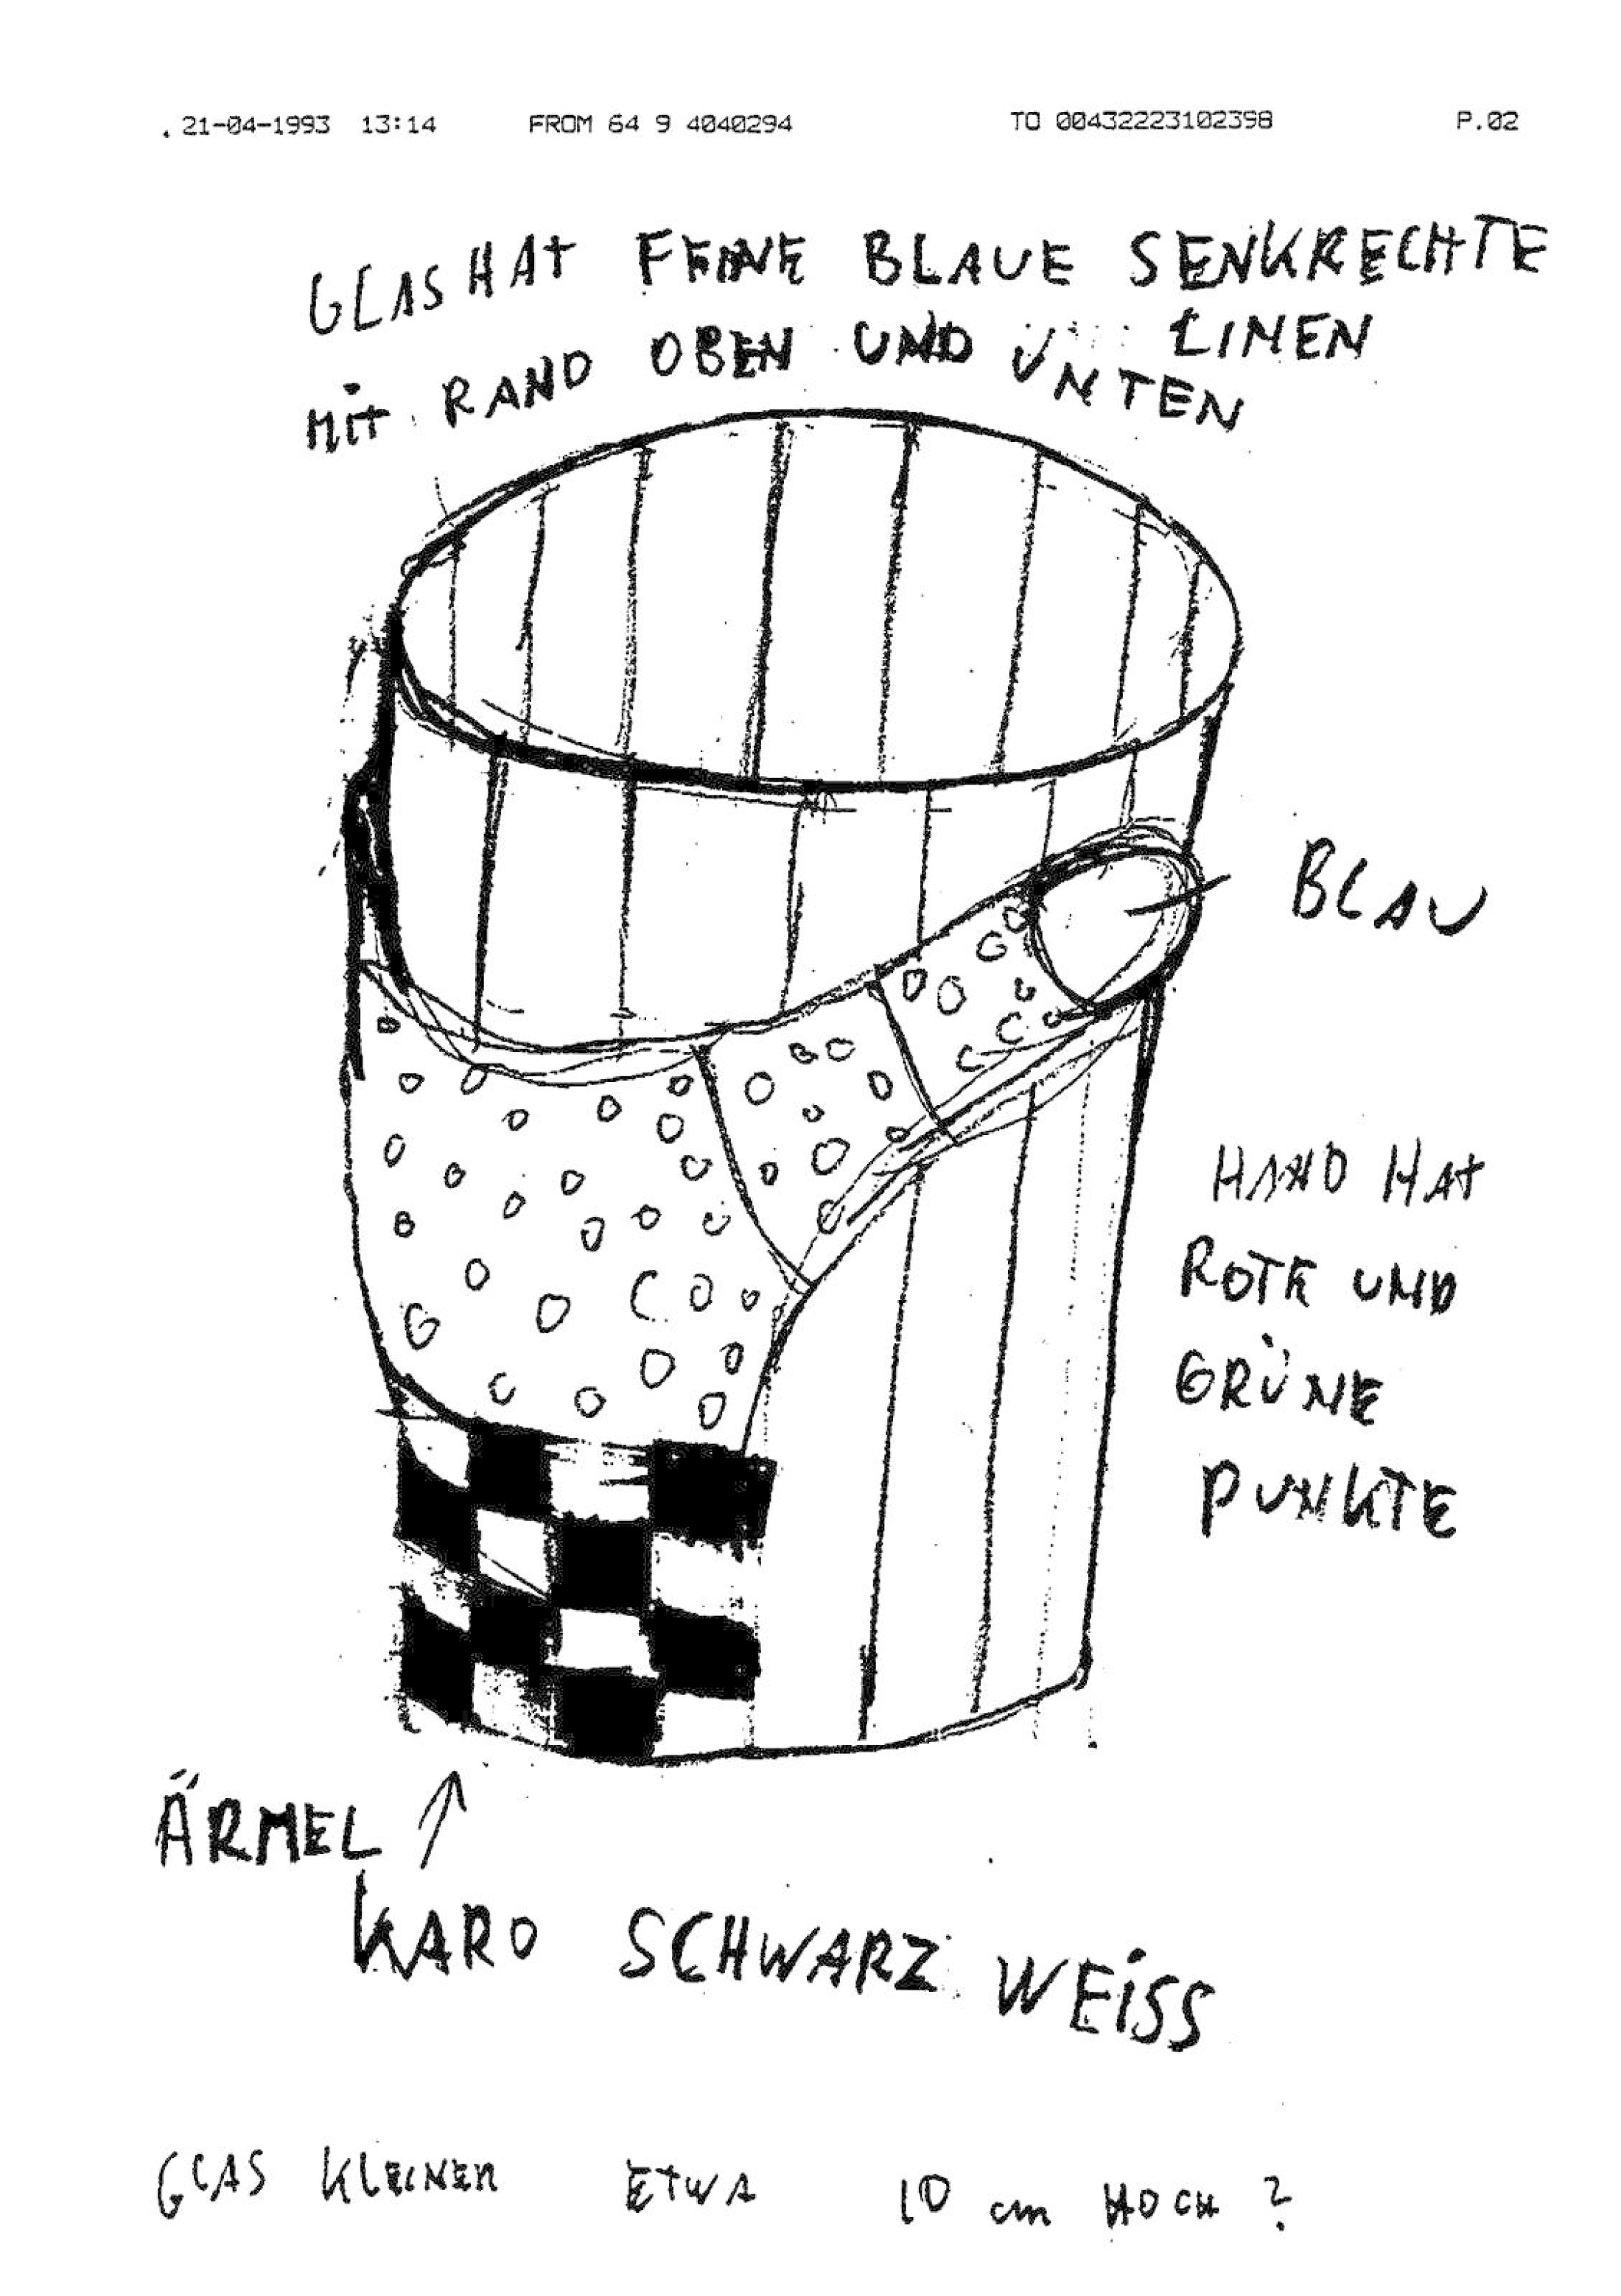 . 21-04-1993 13:14 FROM 64 9 4040294 TO 004322223102398 P.02
GLAS HAT FEINE BLAUE SENKRECHTE
LINEN
MIT RAND OBEN UND UNTEN
BLAU
HAND HAT
ROTE UND
GRÜNE
PUNKTE
ÄRMEL
KARO SCHWARZ WEISS
GLAS KLEINER ETWA 10 cm HOCH ?